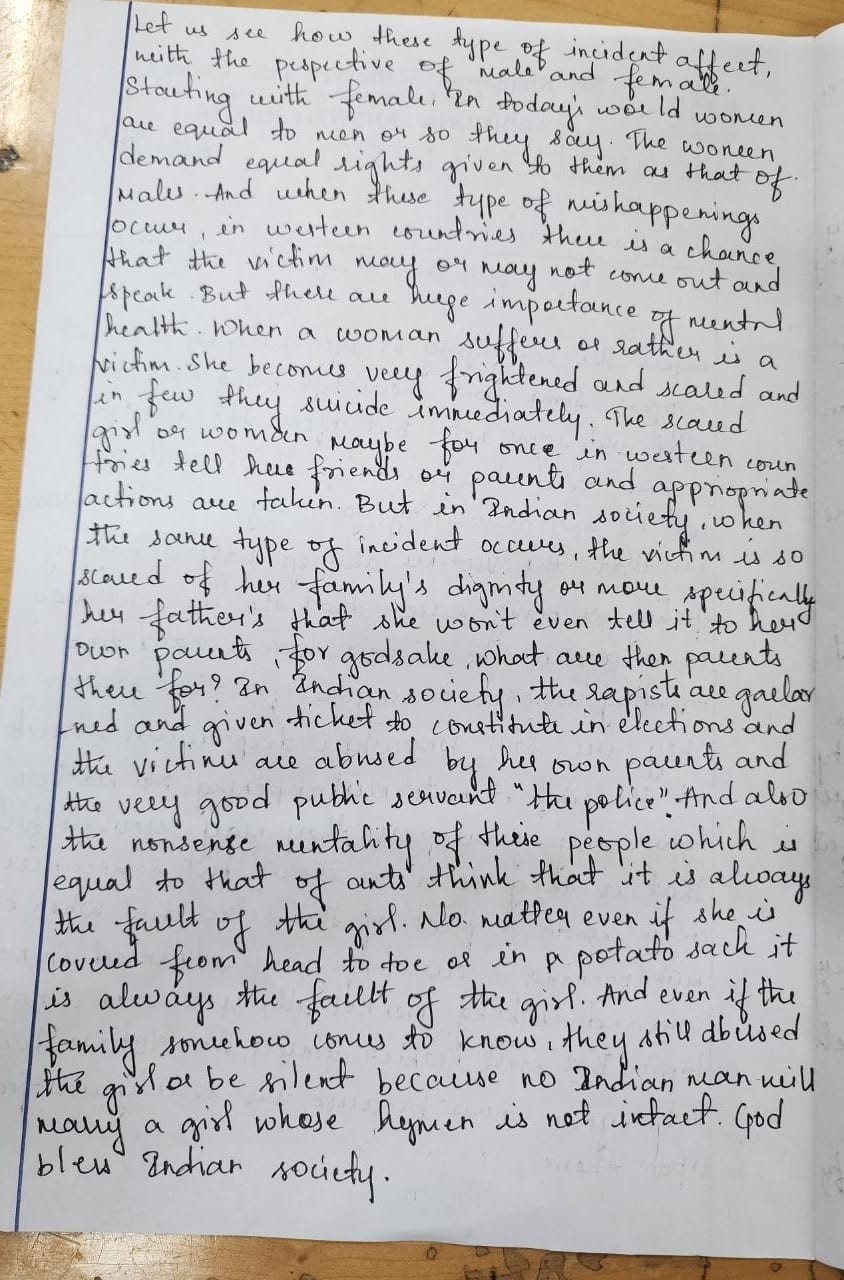 Let us see how these type of incident affect,
with the pespective of male and female.
Starting with female, In today's would women
are equal to men or so they say. The women
demand equal rights given to them as that of
Males. And when these type of mishappenings
occur, in western countries there is a chance
that the victim may or may not come out and
speak. But there are huge importance of mental
health. When a woman suffers or rather is a
victim. She becomes very frightened and scared and
in few they suicide immediately. The scared
girl or woman Maybe for once in western coun
tries tell here friends or parents and appropriate
actions are taken. But in Indian society, when
the same type of incident occures, the victim is so
scared of her family's dignity or more specifically
her father's that she won't even tell it to her
own parents, for godsake, what are then parents
there for? In Indian society, the rapists are gaelar
ned and given ticket to constitute in elections and
the victims are abused by her own parents and
the very good public servant "the police". And also
the nonsense mentality of these people which is
equal to that of ants think that it is always
the fault of the girl. No. matter even if she is
covered from head to toe or in a potato sack it
is always the fault of the girl. And even if the
family somehow comes to know, they still abused
the girl or be silent because no Indian man will
marry a girl whose hymen is not intact. God
bless Indian society.